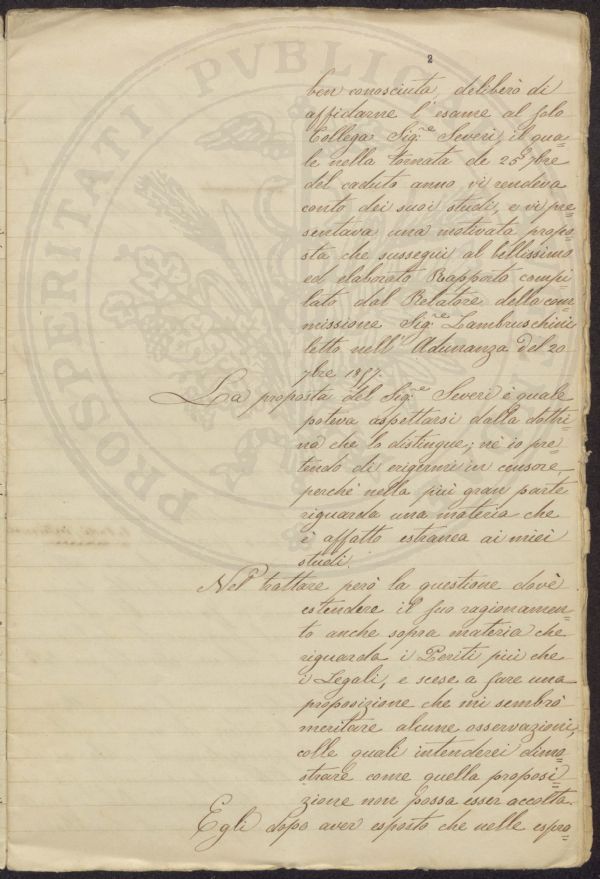 2
ben conosciuta, deliberò di
affidarne l'esame al solo
Collega Sig.re Severi, il qua=
le nella tornata de 25 9bre
del caduto anno vi rendeva
conto dei suoi studi, e vi pre=
sentava una motivata propo=
sta che susseguì al bellissimo
ed elaborato Rapporto compi=
lato dal Relatore della com=
missione Sig.re Lambruschini
letto nell'Adunanza del 20
7bre 1857.
La proposta del Sig.re Severi è quale
poteva aspettarsi dalla dottri=
na che lo distingue; nè io pre=
tendo di erigermi in censore
perchè nella più gran parte
riguarda una materia che
è affatto estranea ai miei
studi.
Nel trattare però la questione dovè
estendere il suo ragionamen=
to anche sopra materia che
riguarda i Periti più che
i Legali, e scese a fare una
proposizione che mi sembrò
meritare alcune osservazioni,
colle quali intenderei dimo=
strare come quella proposi=
zione non possa esser accolta.
Egli dopo aver esposto che nelle espro=
PROSPERITATI PVBLICAE